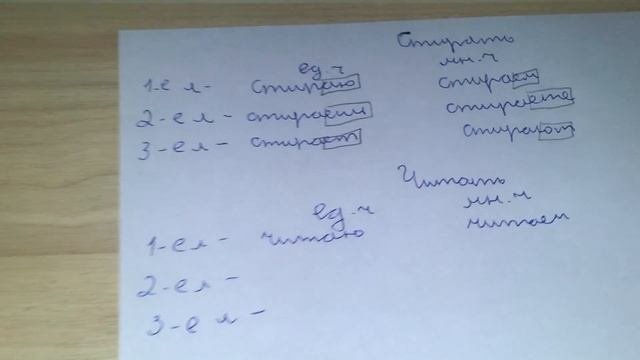 Стирать
ед.ч мн.ч
1-е л- стираю стираем
2-е л- стираеш стираете
3-е л- стирает стирают
Читать
ед.ч мн.ч
1-е л- читаю читаем
2-е л-
3-е л-